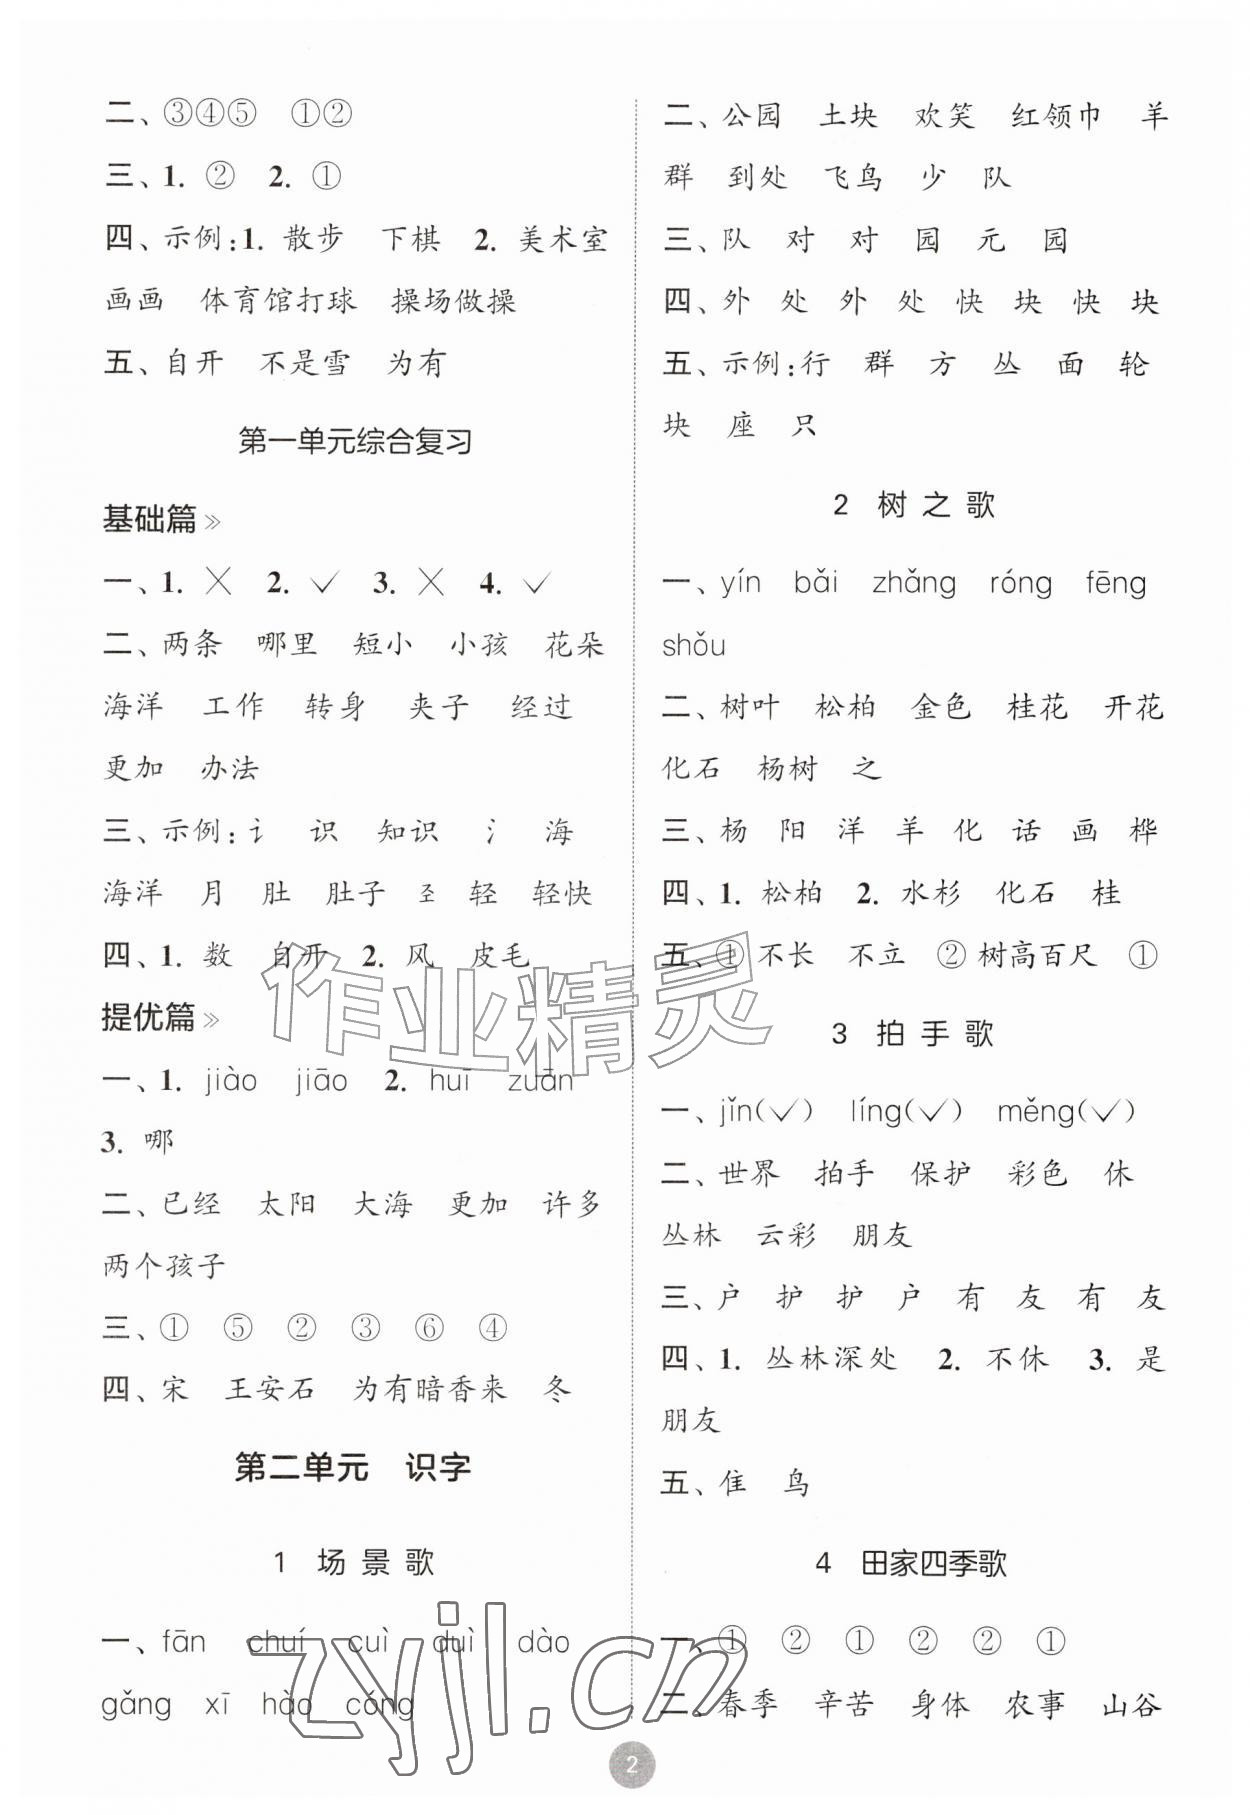 二、③④⑤　①②
三、1. ②　2. ①
四、示例:1. 散步　下棋　2. 美术室
画画　体育馆打球　操场做操
五、自开　不是雪　为有
第一单元综合复习
基础篇»
一、1. ╳　2. ✓　3. ╳　4. ✓
二、两条　哪里　短小　小孩　花朵
海洋　工作　转身　夹子　经过
更加　办法
三、示例:讠　识　知识　氵　海
海洋　月　肚　肚子　𤣩　轻　轻快
四、1. 数　自开　2. 风　皮毛
提优篇»
一、1. jiào　jiāo　2. huī　zuān
3. 哪
二、已经　太阳　大海　更加　许多
两个孩子
三、①　⑤　②　③　⑥　④
四、宋　王安石　为有暗香来　冬
第二单元　识字
1　场景歌
一、fān　chuí　cuì　duì　dào
gǎng　xī　hào　cóng
二、公园　土块　欢笑　红领巾　羊
群　到处　飞鸟　少　队
三、队　对　对　园　元　园
四、外　处　外　处　快　块　快　块
五、示例:行　群　方　丛　面　轮
块　座　只
2　树之歌
一、yín　bǎi　zhǎng　róng　fēng
shǒu
二、树叶　松柏　金色　桂花　开花
化石　杨树　之
三、杨　阳　洋　羊　化　话　画　桦
四、1. 松柏　2. 水杉　化石　桂
五、①不长　不立　②树高百尺　①
3　拍手歌
一、jǐn(✓)　líng(✓)　měng(✓)
二、世界　拍手　保护　彩色　休
丛林　云彩　朋友
三、户　护　护　户　有　友　有　友
四、1. 丛林深处　2. 不休　3. 是
朋友
五、隹　鸟
4　田家四季歌
一、①　②　①　②　②　①
二、春季　辛苦　身体　农事　山谷
作业精灵
zyjl.cn
2